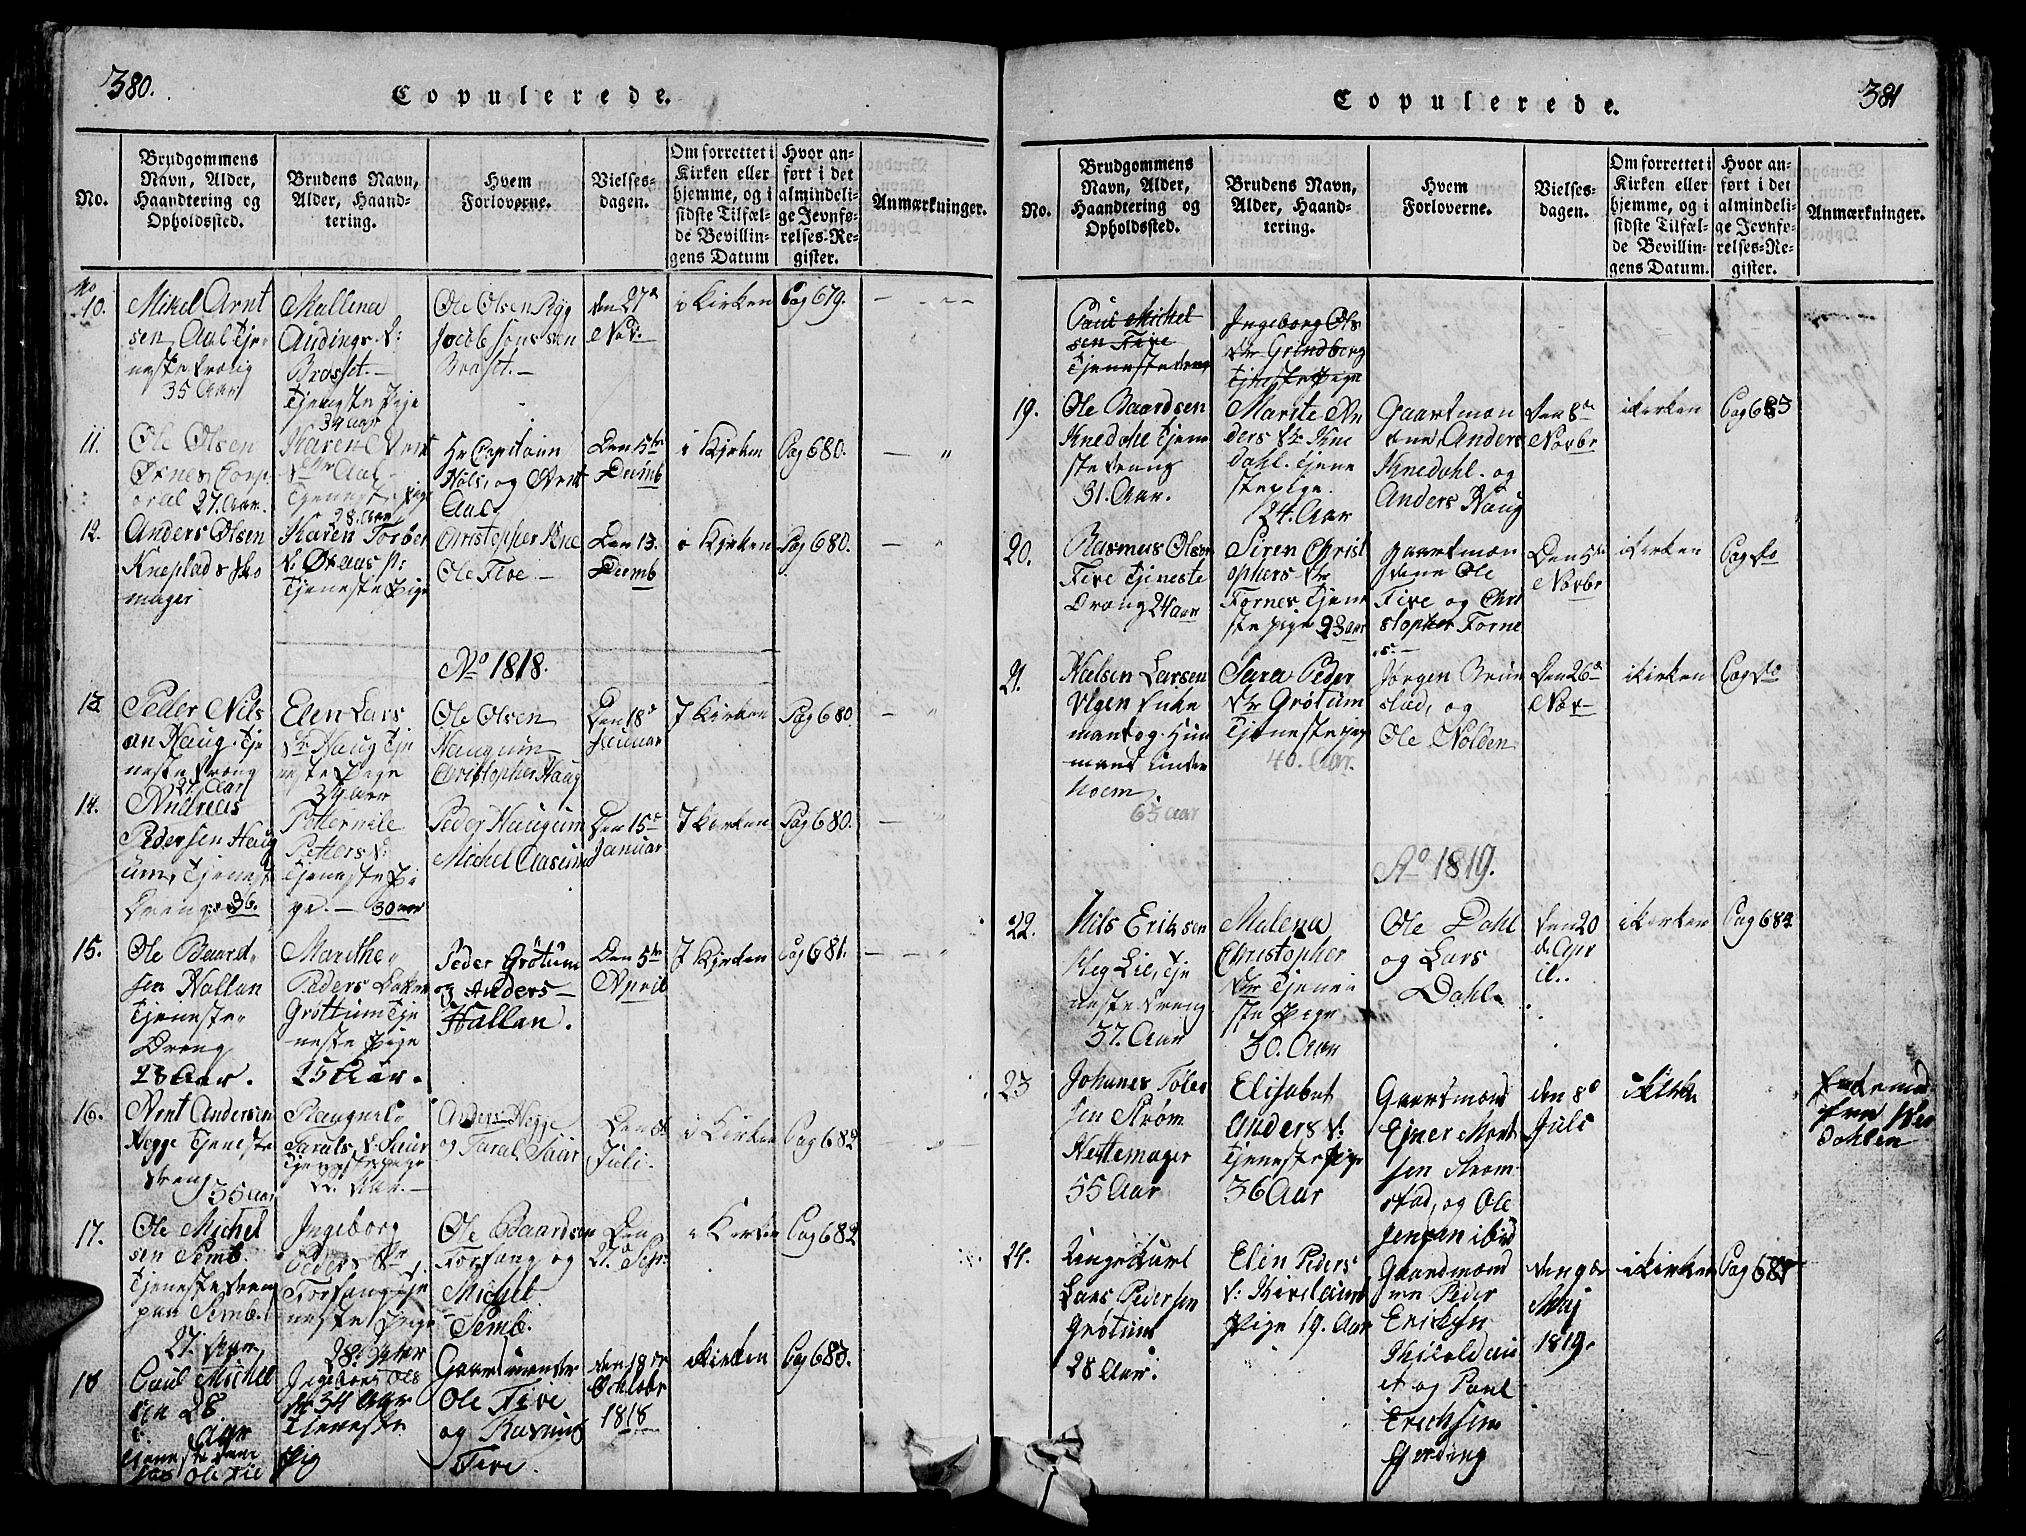 380.
Copulerede.
No.
Brudgommens
Navn, Alder,
Haandtering og
Opholdssted.
Brudens Navn,
Alder, Haand-
tering.
Hvem
Forloverne.
Vielses-
dagen.
Om forrettet i
Kirken eller
hjemme, og i
sidste Tilfæl-
de Bevillin-
gens Datum
Hvor an-
ført i det
almindeli-
ge Jevnfø-
relses-Re-
gister.
Anmærkninger.
No
10.
Mikel Arnt
sen Aal Tje-
neste Dreng
35 Aar
Mallena
Audings D:
Brasset.
Tjeneste Pige
34 aar
Ole Olsen Ryg
Jocob Jonssen
Brasset.
den 27de
Nov:
i Kirken
Pag 679.
11.
Ole Olsen
Ørnes Corp-
oral 27. Aar.
Karen Arnt
Dtr Aal
Tjeneste pige
28. Aar
Hr Capitain
Hols, og Arnt
Aal.
Den 5te
Decemb
i Kirken
Pag 680.
12.
Anders Olsen
Kneplads Sko
mager
Karen Torber
D:
Tjeneste Pige
Christopher
Ole Five
Den 13.
Decemb
i Kirken
Pag 680.
No 1818.
13.
Peder Nils
en Haug Tje
neste Dreng
27. Aar
Elen Lars
Dtr Haug Tje
neste Pige
34 aar
Ole Olsen
Haugum
Christopher Haug
Den 18de
Januar
I Kirken
Pag 680.
14.
Andreas
Pedersen Haug
um, Tjeneste
Dreng. 36.
Petternele
Petters D:
Tjeneste Pi
ge. 30 aar
Peder Haugum
Michel Aasum
Den 15de
Januar
I Kirken
Pag 680.
15.
Ole Baard-
sen Hallan
Tjeneste
Dreng
28 Aar.
Marithe
Peders Datter
Grøttum Tje
neste Pige
25 Aar.
Peder Grøtum
og Anders
Hallan.
Den 5te
April
I Kirken
Pag 681.
16.
Arnt Andersen
Hegge Tjeneste
Dreng
35 aar
Raugnil
Taralds D: Saur
Tjeneste Pige
22. Aar.
Anders Hegge
og Taral Saur
Den 8.
Juli.
i Kirken
Pag 682
17.
Ole Michel
sen Semb
Tjeneste Dreng
paa Semb.
27. Aar
Ingeborg
Peders Dtr
Torfang Tje
neste Pige
28. Aar
Ole Baardsen
Torfang og
Michel
Semb.
Den
27. Sept.
i Kirken
Pag 682
18
Paul Michel
sen 28
Aar
Tjeneste Dreng
hos Ole Five
Ingeborg Ols
Dtr 34 Aar
Tjeneste
Pig
Gaardmænder
Ole Five
og Rasmus
Five.
den 18de
Octobr
1818
i Kirken
Pag 683.
381
Copulerede.
No.
Brudgommens
Navn, Alder,
Haandtering og
Opholdssted.
Brudens Navn,
Alder, Haand-
tering.
Hvem
Forloverne.
Vielses-
dagen.
Om forrettet i
Kirken eller
hjemme, og i
sidste Tilfæl-
de Bevillin-
gens Datum.
Hvor an-
ført i det
almindeli-
ge Jevnfø-
relses-Re-
gister.
Anmærkninger.
Paul Michel
sen Five
Tjeneste dreng
Ingeborg Ols
Dtr Grindberg
Tjeneste Pige
19.
Ole Baardsen
Knedahl Tjene
ste Dreng
31. Aar.
Marite An
ders Dtr Kne
dahl. Tjene
ste pige.
24. Aar
Gaartmæn
dene, Anders
Knedahl. og
Anders Haug
Den 8de
Novbr
i Kirken
Pag 683
20.
Rasmus Olsen
Five Tjeneste
Dreng 24 aar
Siren Christ
ophers Dtr
Fornes Tjene
ste pige 23 aar
Gaartmæn
dene Ole
Five og Chri
stopher Forne
s.
Den 5te
Novbr
i Kirken
Pag do
21.
Nielsen Larsen
Enke
mand og Huus
mand under
Hoem.
63 aar
Sara Peder
Dtr Grøtum
Tjeneste pige
40. Aar.
Jørgen Brun
stad, og
Ole Nolden
Den 26de
Nov
i Kirken
Pag do
Ao 1819.
22.
Nils Ericksen
Heg Lie, Tje
neste Dreng
37. Aar
Malena
Christopher
Dtr Tjene
ste Pige
30. Aar
Ole Dahl
og Lars
Dahl.
Den 20
de Apr
il.
i Kirken
Pag 684.
23
Johanes Tøles
sen Strøm
Hattemager
55 Aar
Elisabet
Anders D:
Tjeneste Pige
36 Aar
Gaartmænd
Ejner Arnt
sen Strøm
stad, og Ole
Jensen ibid
den 8de
Juli
i Kirke
Enkemand
fra
Dahlen
24.
Ungekarl
Lars Pedersen
Grøtum
28 Aar.
Elen Peders
D:
Pige 19. Aar
Gaardmænd
ene Peder
Ericksen
og Paul
Ericksen
Gjerding
Maj
1819.
i Kirken
Pag 685